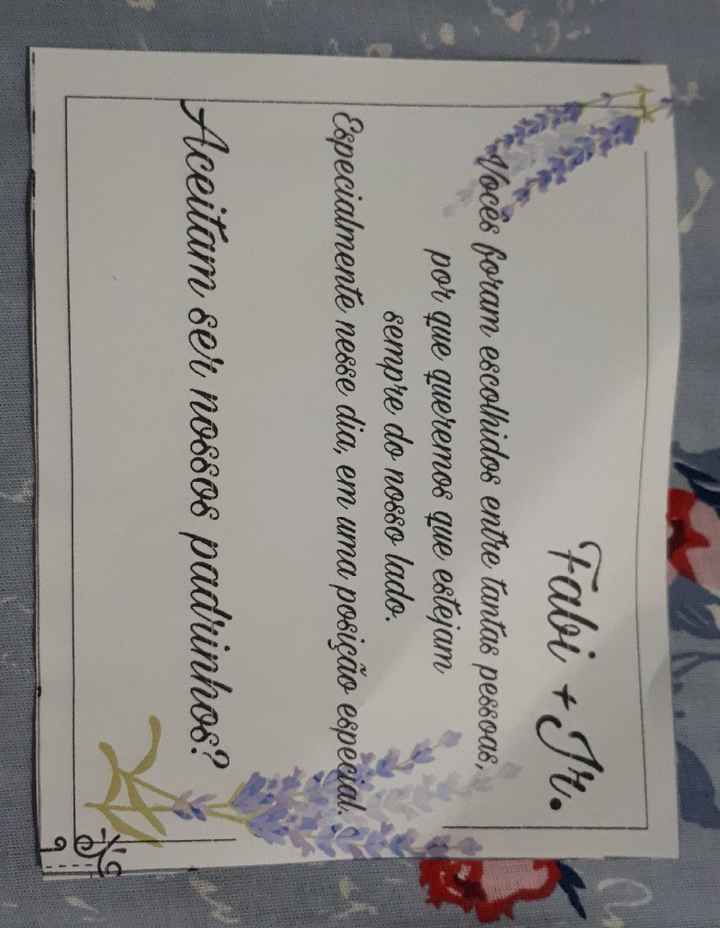 Fabi + Jr.
Vocês foram escolhidos entre tantas pessoas,
por que queremos que estejam
sempre do nosso lado.
Especialmente nesse dia, em uma posição especial.
Aceitam ser nossos padrinhos?